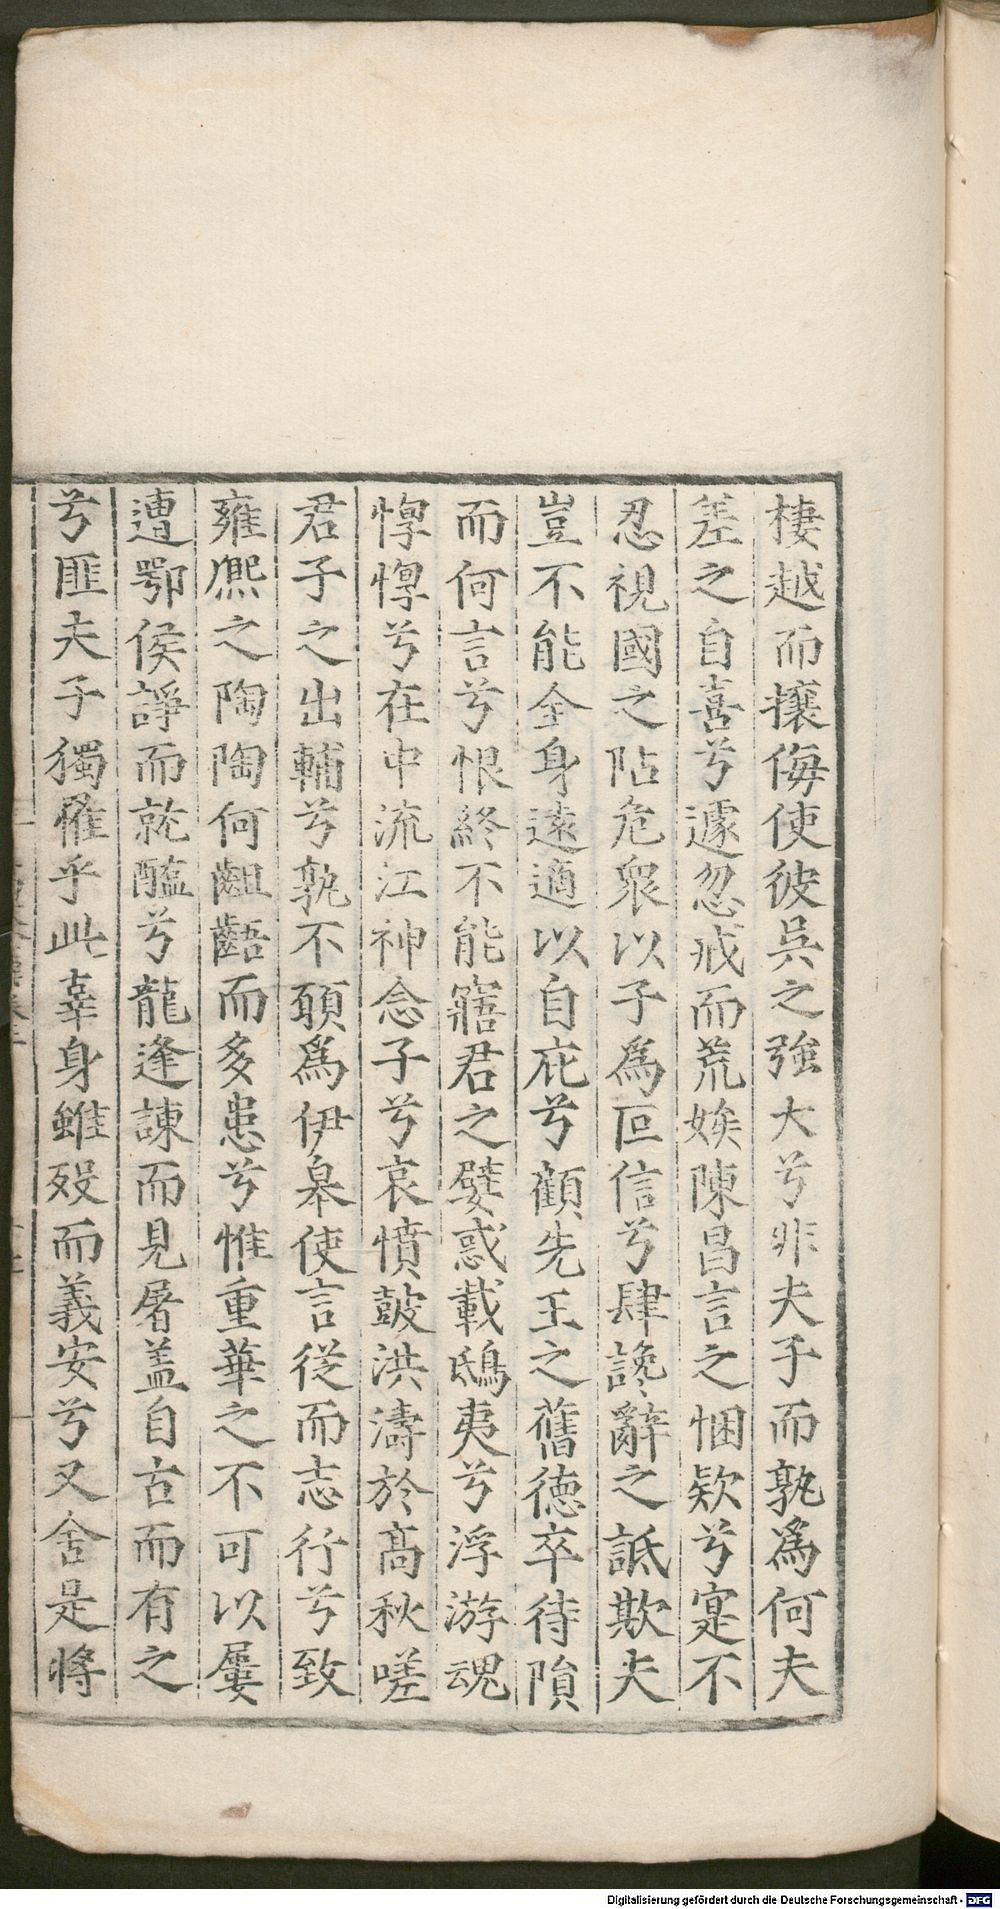 棲越而攘侮使彼吳之強大兮非夫子而孰爲何夫
差之自喜兮遽忽戒而荒娭陳昌言之悃欵兮寔不
忍視國之阽危衆以子爲叵信兮肆讒辭之詆欺夫
豈不能全身遠適以自庇兮顧先王之舊德卒待隕
而何言兮恨終不能寤君之嬖惑載鴟夷兮浮游魂
惸惸兮在中流江神念子兮哀憤鼓洪濤於高秋嗟
君子之出輔兮孰不願爲伊皋使言從而志行兮致
雍熙之陶陶何齟齬而多患兮惟重華之不可以屢
遭鄂侯諍而就醢兮龍逢諫而見屠盖自古而有之
兮匪夫子獨罹乎此辜身雖殁而義安兮又舍是將
Digitalisierung gefördert durch die Deutsche Forschungsgemeinschaft - DFG